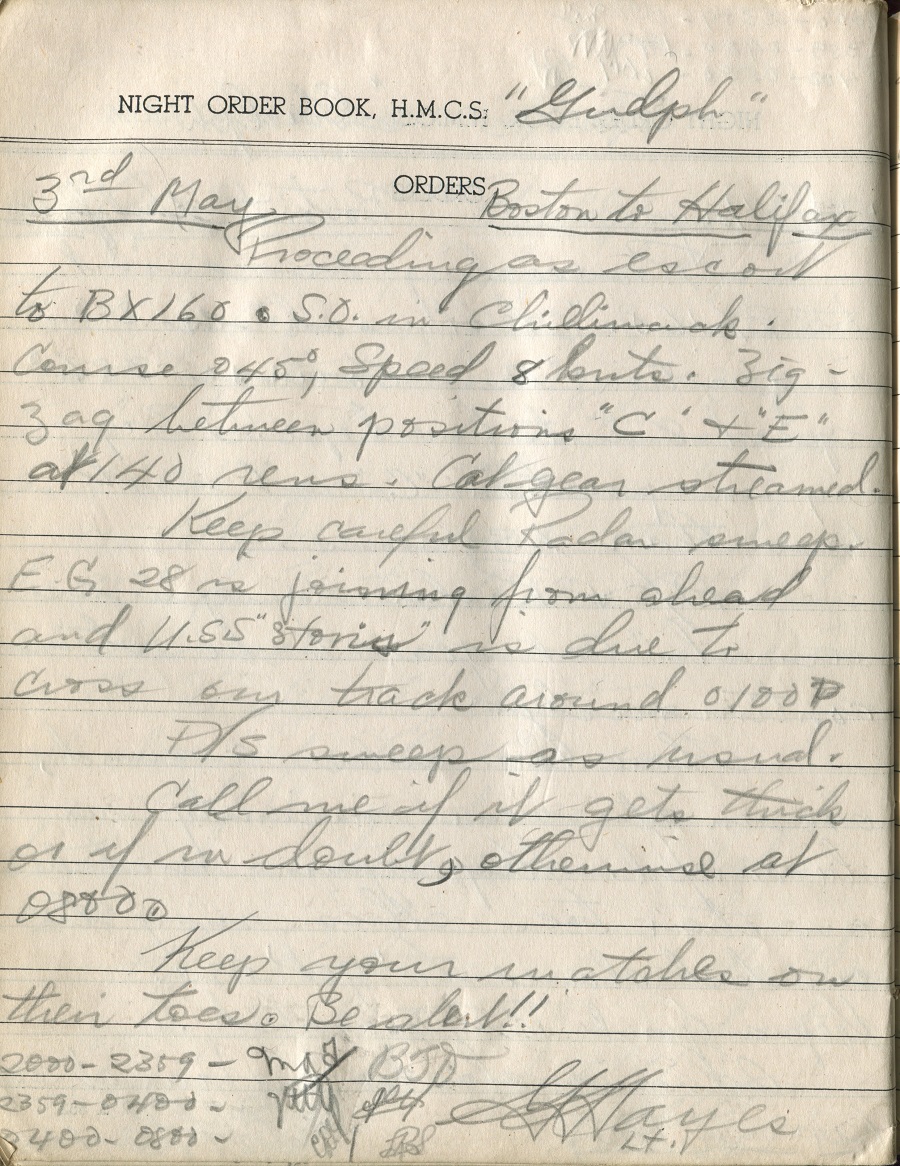 NIGHT ORDER BOOK, H.M.C.S. "Guelph"
ORDERS
3rd May. Boston to Halifax
Proceeding as escort
to BX160. S.O. in Chilliwack.
Course 045°, Speed 8 knots. Zig-
zag between positions "C" & "E"
at 140 revs. Cat gear streamed.
Keep careful Radar sweep.
E.G. 28 is joining from ahead
and U.S.S. is due to
cross our track around 0100P
D/S sweep as usual.
Call me if it gets thick
or if in doubt, otherwise at
0800
Keep your watches on
their toes. Be alert!!
2000-2359-
2359-0400-
0400-0800-
Hayes
Lt.